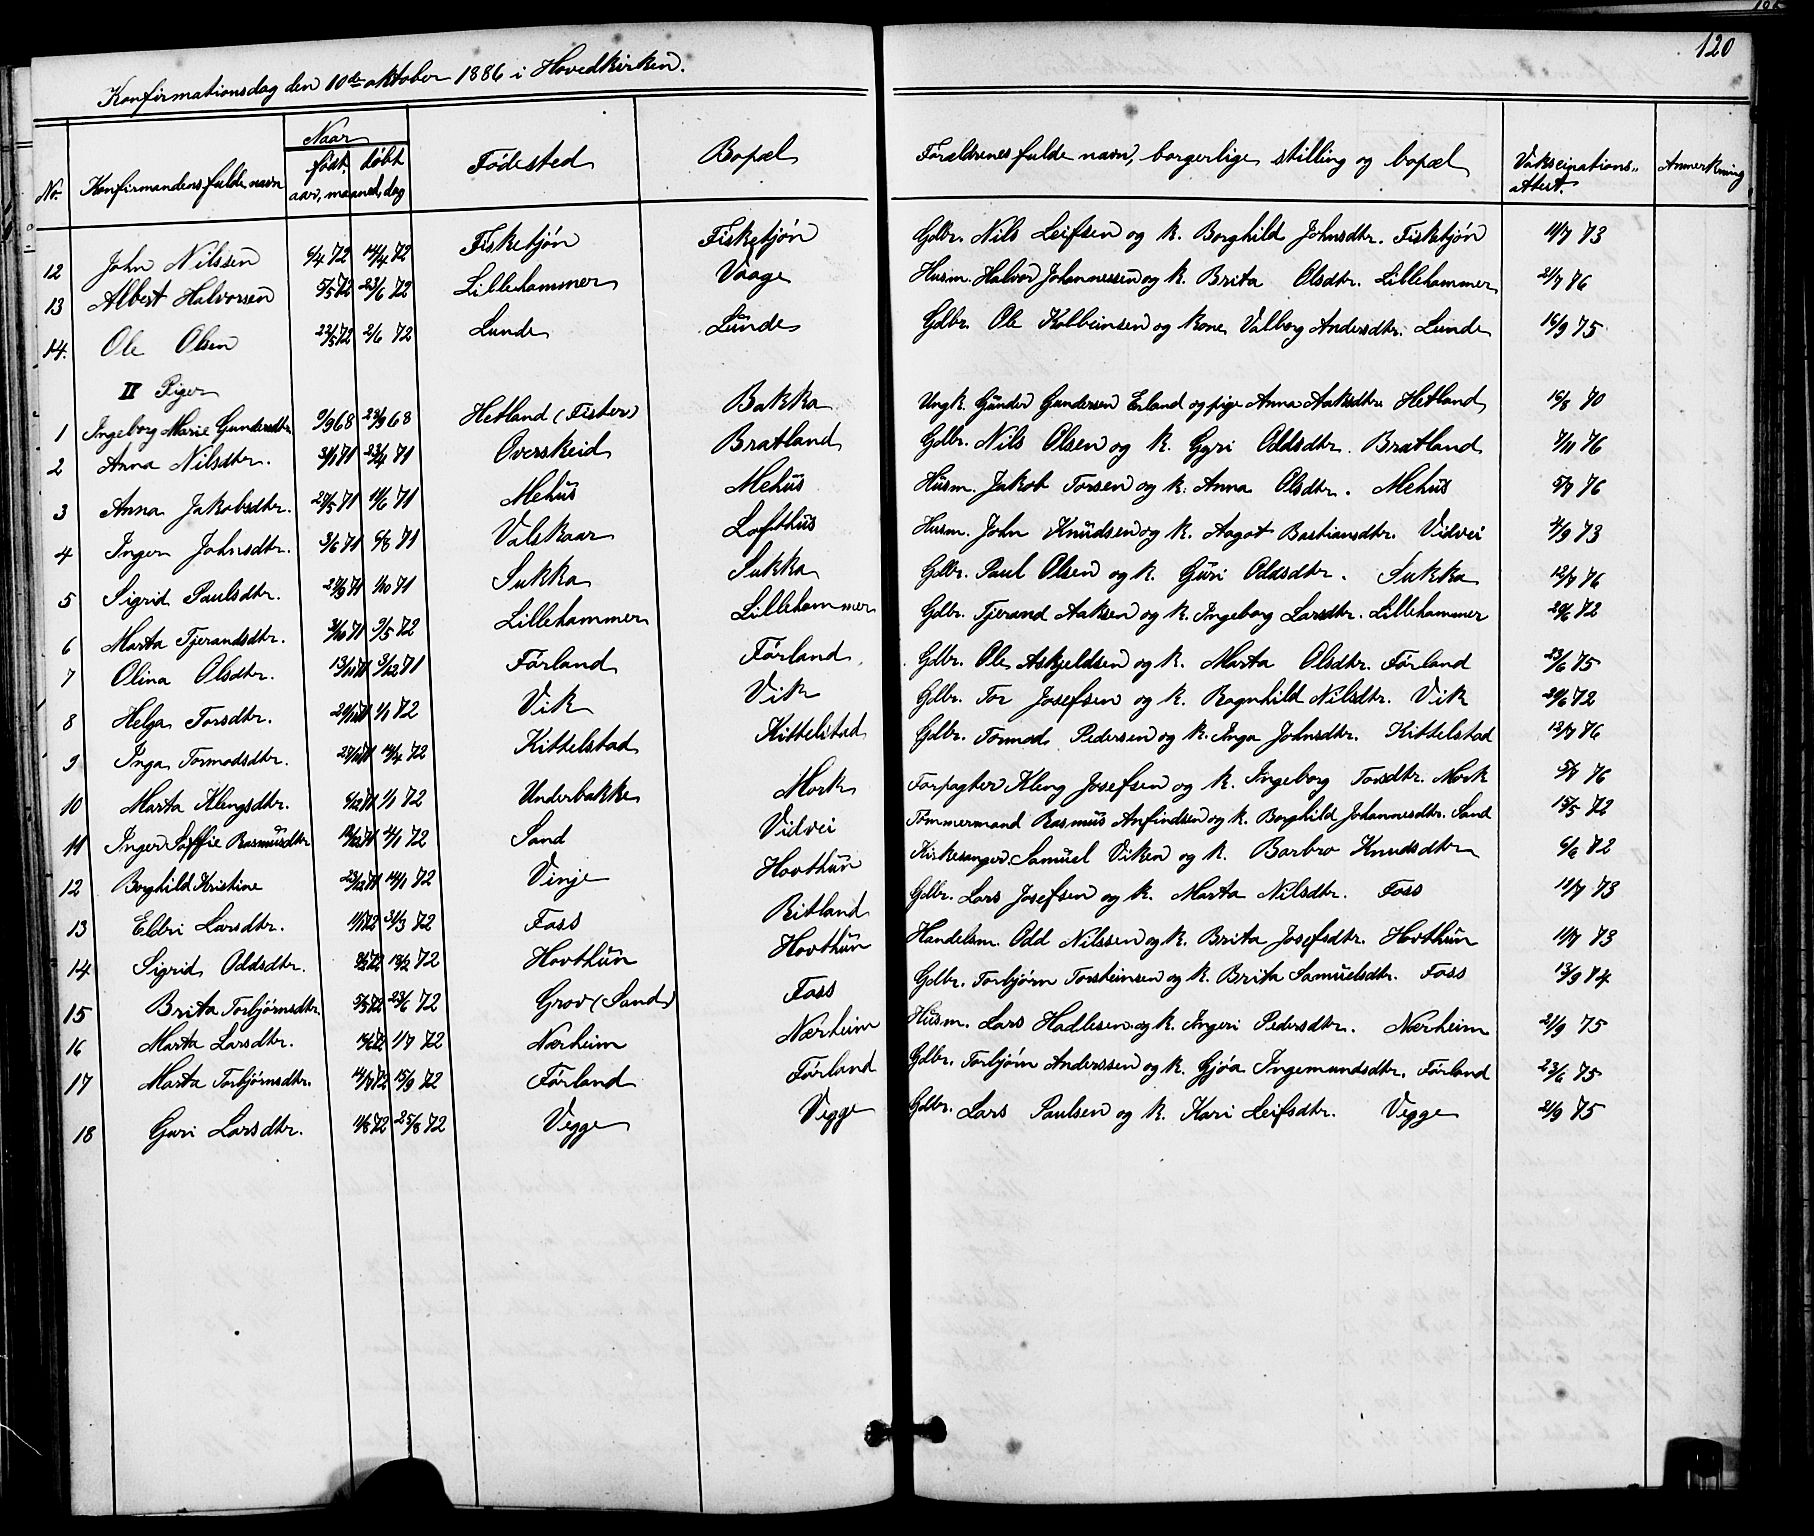 120
Konfirmationsdag den 10de oktober 1886 i Hovedkirken.
No. Konfirmandens fulde navn Naar født, døbt aar, maaned, dag Fødested Bopæl Forældrenes fulde navn, borgerlige stilling og bopæl Vakscinations- attest. Anmerkning
12 John Nilssen 6/4 72 14/4 72 Fisketjøn Fisketjøn Gdbr. Nils Leifsen og k. Borghild Johnsdtr. Fisketjøn 11/7 73
13 Albert Halvorsen 5/5 72 23/6 72 Lillehammer Vaage Husm. Halvor Johannessen og k. Brita Olsdtr. Lillehammer 21/7 76
14. Ole Olsen 22/5 72 2/6 72 Lunde Lunde Gdbr. Ole Kolbeinsen og kone Valborg Andersdtr. Lunde 16/9 75
II Piger
1 Ingeborg Marie Gundersdtr 9/9 68 22/9 68 Hetland (Fister) Bakka Ungk. Gunder Gundersen Erland og pige Anna Aaksdtr. Hetland 16/8 70
2 Anna Nilsdtr. 31/1 71 23/4 71 Overskeid Bratland Gdbr. Nils Olsen og k. Gyri Oddsdtr. Bratland 7/11 76
3 Anna Jakobsdtr. 29/5 71 11/6 71 Mehus Mehus Husm. Jakob Torsen og k. Anna Olsdtr. Mehus 5/7 76
4 Inger Johnsdtr. 3/6 71 6/8 71 Valskaar Lofthus Husm. John Knudsen og k. Aagot Bastiansdtr. Vidvei 4/9 73
5 Sigrid Paulsdtr. 24/9 71 1/10 71 Sukka Sukka Gdbr. Paul Olsen og k. Guri Oddsdtr. Sukka 12/7 76
6 Marta Tjerandsdtr. 31/10 71 9/5 72 Lillehammer Lillehammer Gdbr. Tjerand Aaksen og k. Ingeborg Larsdtr. Lillehammer 20/6 72
7 Olina Olsdtr. 13/11 71 3/12 71 Førland Førland Gdbr. Ole Askjeldsen og k. Marta Olsdtr. Førland 23/6 75
8 Helga Torsdtr. 1/1 72 Vik Vik Gdbr. Tor Josefsen og k. Ragnhild Nilsdtr. Vik 20/6 72
9 Inga Tormodsdtr. 14/4 72 Kittelstad Kittelstad Gdbr. Tormod Pedersen og k. Inga Johnsdtr. Kittelstad 12/7 76
10 Marta Klengsdtr. 1/1 72 Underbakke Mork Forpagter Kleng Josefsen og k. Ingeborg Torsdtr. Mork 5/7 76
11 Inger Soffie Rasmusdtr 72 Sand Vidvei Tømmermand Rasmus Anfindsen og k. Borghild Johannesdtr. Sand 15/5 72
12 Borghild Kristine 23/12 71 14/1 72 Vinje Hovthun Kirkesanger Samuel Viken og k. Barbro Knudsdtr 6/6 72
13 Eldri Larsdtr. 31/3 72 Foss Ritland Gdbr. Lars Josefsen og k. Marta Nilsdtr. Foss 11/7 73
14 Sigrid Oddsdtr. 72 Hovthun Hovthun Handelsm. Odd Nilssen og k. Brita Josefsdtr. Hovthun 11/7 73
15 Brita Torbjørnsdtr. 23/6 72 Grov (Sand) Foss Gdbr. Torbjørn Torsteinsen og k. Brita Samuelsdtr. Foss 13/9 74
16 Marta Larsdtr. 1/7 72 Nærheim Nærheim Husm. Lars Hadlesen og k. Ingeri Pedersdtr. Nærheim 21/9 75
17 Marta Torbjørnsdtr. 14/7 72 15/9 72 Førland Førland Gdbr. Torbjørn Anderssen og k. Gjøa Ingemundsdtr. Førland 23/6 75
18 Guri Larsdtr. 11/8 72 25/8 72 Vegge Vegge Gdbr. Lars Paulsen og k. Kari Leifsdtr. Vegge 21/9 75